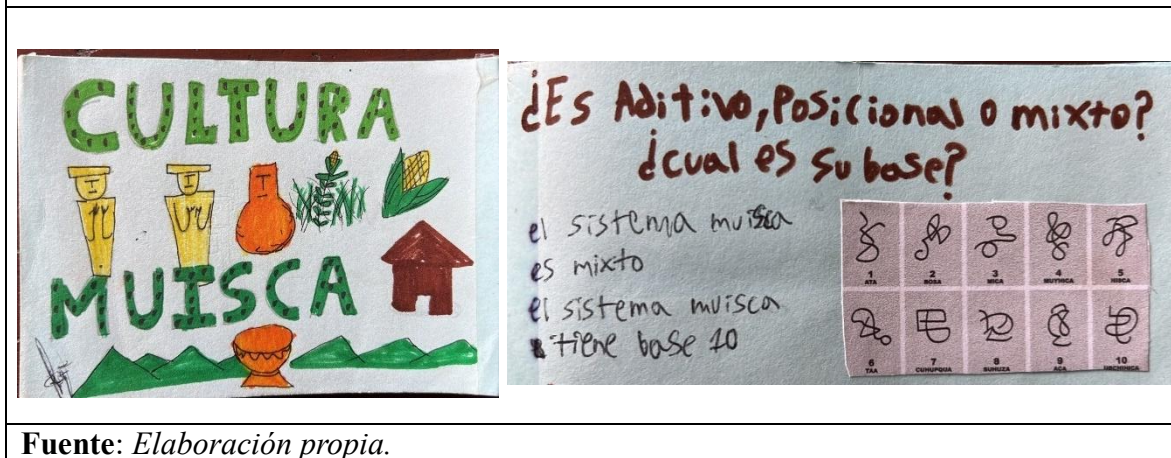 CULTURA
MUISCA
¿Es Aditivo, Posicional o mixto?
¿cual es su base?
el sistema muisca
es mixto
el sistema muisca
tiene base 10
1 2 3 4 5
ATA BOSA MICA MUYHICA HISCA
6 7 8 9 10
TAA CUHUPQUA SUHUZA ACA UBCHIHICA
Fuente: Elaboración propia.